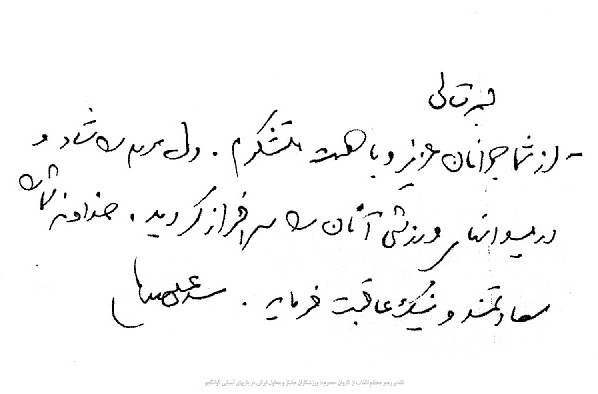 بسمه‌تعالی
- از شما جوانان عزیز و با همت متشکرم. دل مردم را شاد و
در میدانهای ورزشی آنان را سرافراز کردید. خداوند شما را
سعادتمند و نیک عاقبت فرماید. سیدعلی خامنه‌ای
تقدیر رهبر معظم انقلاب از کاروان «محرم» ورزشکاران جانباز و معلول ایرانی در بازیهای آسیایی گوانگجو